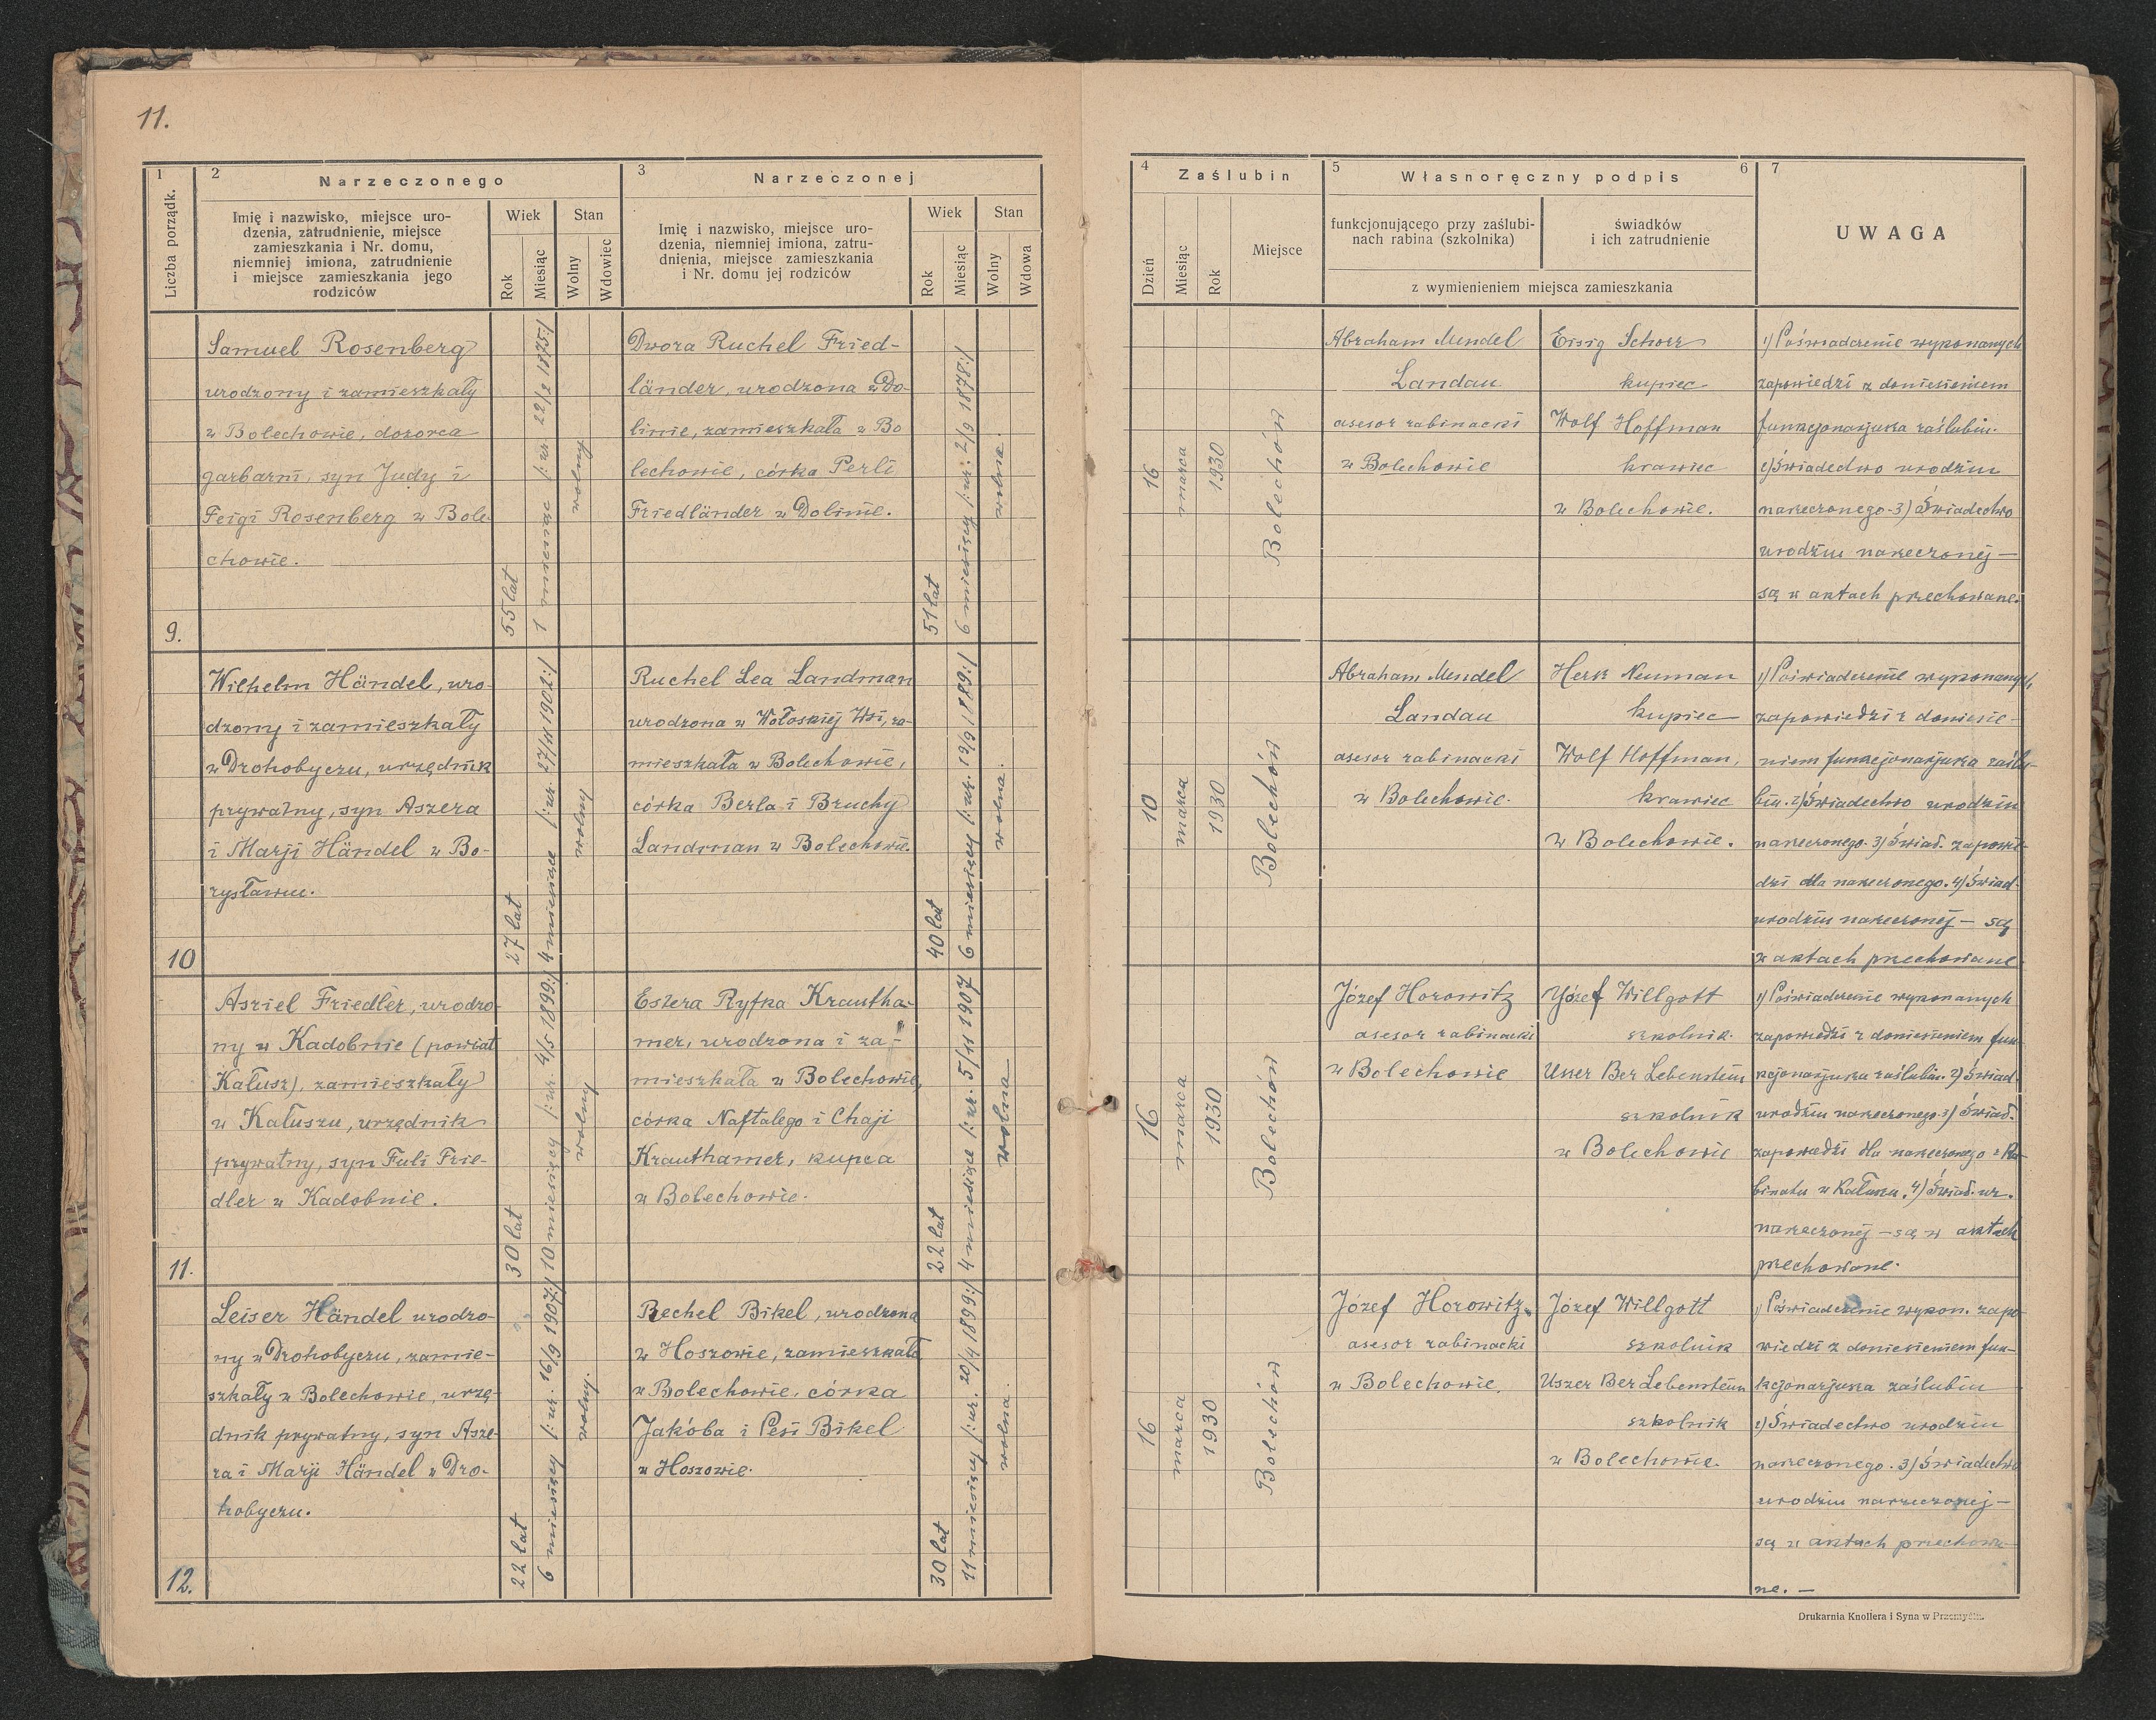 11.
1
2
Narzeczonego
3
Narzeczonej
Liczba porządk.
Imię i nazwisko, miejsce uro-
dzenia, zatrudnienie, miejsce
zamieszkania i Nr. domu,
niemniej imiona, zatrudnienie
i miejsce zamieszkania jego
rodziców
Wiek
Stan
Rok
Miesiąc
Wolny
Wdowiec
Imię i nazwisko, miejsce uro-
dzenia, niemniej imiona, zatru-
dnienia, miejsce zamieszkania
i Nr. domu jej rodziców
Wiek
Stan
Rok
Miesiąc
Wolny
Wdowa
4
Zaślubin
5
Własnoręczny podpis
6
7
Dzień
Miesiąc
Rok
Miejsce
funkcjonującego przy zaślubi-
nach rabina (szkolnika)
świadków
i ich zatrudnienie
z wymienieniem miejsca zamieszkania
UWAGA
9.
Samuel Rosenberg
urodzony i zamieszkały
w Bolechowie, dozorca
garbarni, syn Judy i
Feigi Rosenberg w Bole-
chowie.
55 lat
1 miesiąc /:ur. 22/2 1875:/
wolny
Dwora Ruchel Fried-
länder, urodzona w Do-
linie, zamieszkała w Bo
lechowie, córka Perli
Friedländer w Dolinie.
51 lat
6 miesięcy /:ur. 2/9 1878:/
wolna.
16
marca
1930
Bolechów
Abraham Mendel
Landau
asesor rabinacki
w Bolechowie
Eisig Schorr
kupiec
Wolf Hoffman
krawiec
w Bolechowie.
1) Poświadczenie wykonanych
zapowiedzi z doniesieniem
funkcjonarjusza zaślubin.
2) Świadectwo urodzin
narzeczonego. 3) Świadectwo
urodzin narzeczonej —
są w aktach przechowane.
10
Wilhelm Händel, uro-
dzony i zamieszkały
w Drohobyczu, urzędnik
prywatny, syn Aszera
i Marji Händel w Bo-
rysławiu.
27 lat
4 miesiące /:ur. 27/11 1902:/
wolny
Ruchel Lea Landman
urodzona w Wołoskiej Wsi, za-
mieszkała w Bolechowie,
córka Berla i Bruchy
Landman w Bolechowie.
40 lat
6 miesięcy /:ur. 19/9 1889:/
wolna.
10
marca
1930
Bolechów
Abraham Mendel
Landau
asesor rabinacki
w Bolechowie.
Hersz Neuman
kupiec
Wolf Hoffman,
krawiec
w Bolechowie.
1) Poświadczenie wykonanych
zapowiedzi z doniesie-
niem funkcjonarjusza zaślu-
bin. 2) Świadectwo urodzin
narzeczonego. 3) Świad. zapowie-
dzi dla narzeczonego. 4) Świad.
urodzin narzeczonej — są
w aktach przechowane
11.
Asriel Friedler, urodzo-
ny w Kadobnie (powiat
Kałusz), zamieszkały
w Kałuszu, urzędnik
prywatny, syn Fuli Frie-
dler w Kadobnie.
30 lat
10 miesięcy /:ur. 4/5 1899:/
wolny
Estera Ryfka Krautha-
mer, urodzona i za-
mieszkała w Bolechowie,
córka Naftalego i Chaji
Krauthamer, kupca
w Bolechowie.
22 lat
4 miesiące /:ur. 5/11 1907
wolna
16
marca
1930
Bolechów
Józef Horowitz
asesor rabinacki
w Bolechowie
Józef Willgott
szkolnik.
Uszer Ber Lebenstein
szkolnik
w Bolechowie
1) Poświadczenie wykonanych
zapowiedzi z doniesieniem fun-
kcjonarjusza zaślubin. 2) Świad.
urodzin narzeczonego 3) Świad.
zapowiedzi dla narzeczonego z Ra-
binatu w Kałuszu. 4) Świad. ur.
narzeczonej — są w aktach
przechowane.
12.
Leiser Händel urodzo-
ny w Drohobyczu, zamie-
szkały w Bolechowie, urzę-
dnik prywatny, syn Asze-
ra i Marji Händel w Dro-
hobyczu.
22 lat
6 miesięcy /:ur. 16/9 1907:/
wolny.
Rechel Bikel, urodzona
w Hoszowie, zamieszkała
w Bolechowie, córka
Jakóba i Pesi Bikel
w Hoszowie.
30 lat
11 miesięcy /:ur. 20/4 1899:/
wolna.
16
marca
1930
Bolechów
Józef Horowitz
asesor rabinacki
w Bolechowie.
Józef Willgott
szkolnik
Uszer Ber Lebenstein
szkolnik
w Bolechowie.
1) Poświadczenie wykon. zapo-
wiedzi z doniesieniem fun-
kcjonarjusza zaślubin
2) Świadectwo urodzin
narzeczonego. 3) Świadectwo
urodzin narzeczonej —
są w aktach przechowa-
ne. —
Drukarnia Knollera i Syna w Przemyślu.